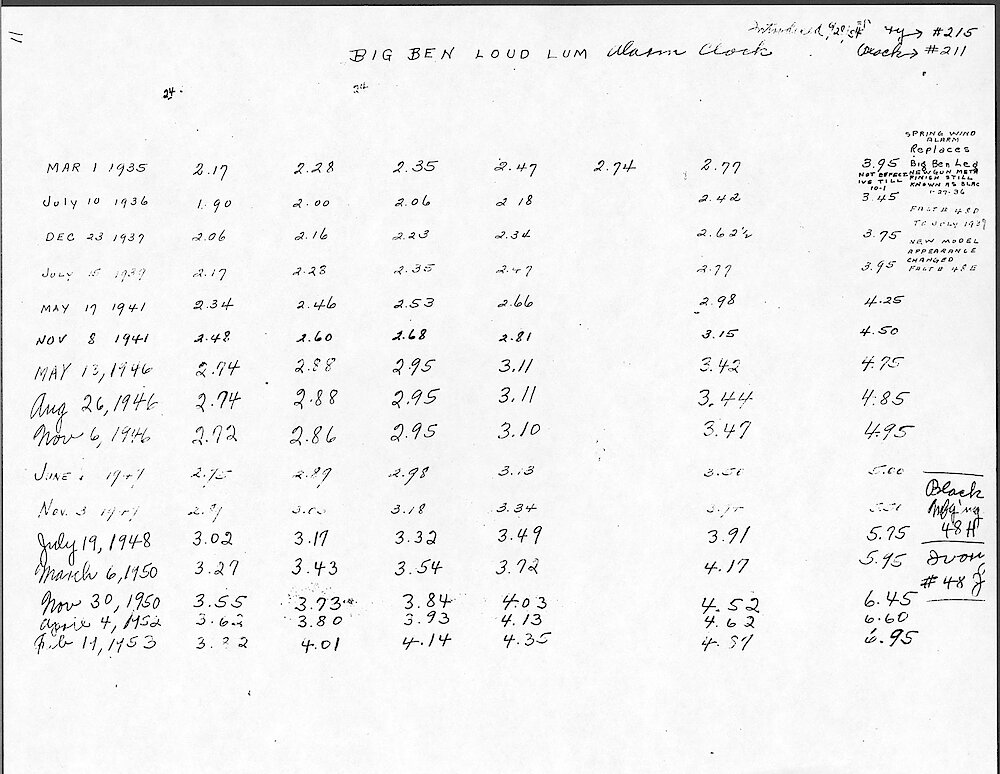 Introduced Ivy → #215
BIG BEN LOUD LUM Alarm Clock Black → #211
24 24
SPRING WIND
ALARM
Replaces
MAR 1 1935 2.17 2.28 2.35 2.47 2.74 2.77 3.95 Big Ben Leg
NOT EFFECTIVE TILL 10-1
NEW GUN META
FINISH STILL
KNOWN AS BLAC
1-27-36
July 10 1936 1.90 2.00 2.06 2.18 2.42 3.45
FACT # 48D
TO JULY 1939
DEC 23 1937 2.06 2.16 2.23 2.34 2.62½ 3.75
NEW MODEL
APPEARANCE
CHANGED
FACT # 48E
July 15 1939 2.17 2.28 2.35 2.47 2.77 3.95
MAY 17 1941 2.34 2.46 2.53 2.66 2.98 4.25
NOV 8 1941 2.48 2.60 2.68 2.81 3.15 4.50
MAY 13, 1946 2.74 2.88 2.95 3.11 3.42 4.75
Aug 26, 1946 2.74 2.88 2.95 3.11 3.44 4.85
Nov 6, 1946 2.72 2.86 2.95 3.10 3.47 4.95
JUNE 1947 2.75 2.89 2.98 3.13 3.50 5.00
Nov. 3 1947 3.18 3.34
Black
Mfg'ng
48H
July 19, 1948 3.02 3.17 3.32 3.49 3.91 5.75
March 6, 1950 3.27 3.43 3.54 3.72 4.17 5.95
Ivory
# 48 J
Nov 30, 1950 3.55 3.73 3.84 4.03 4.52 6.45
April 4, 1952 3.62 3.80 3.93 4.13 4.62 6.60
Feb 17, 1953 4.01 4.14 4.35 6.95